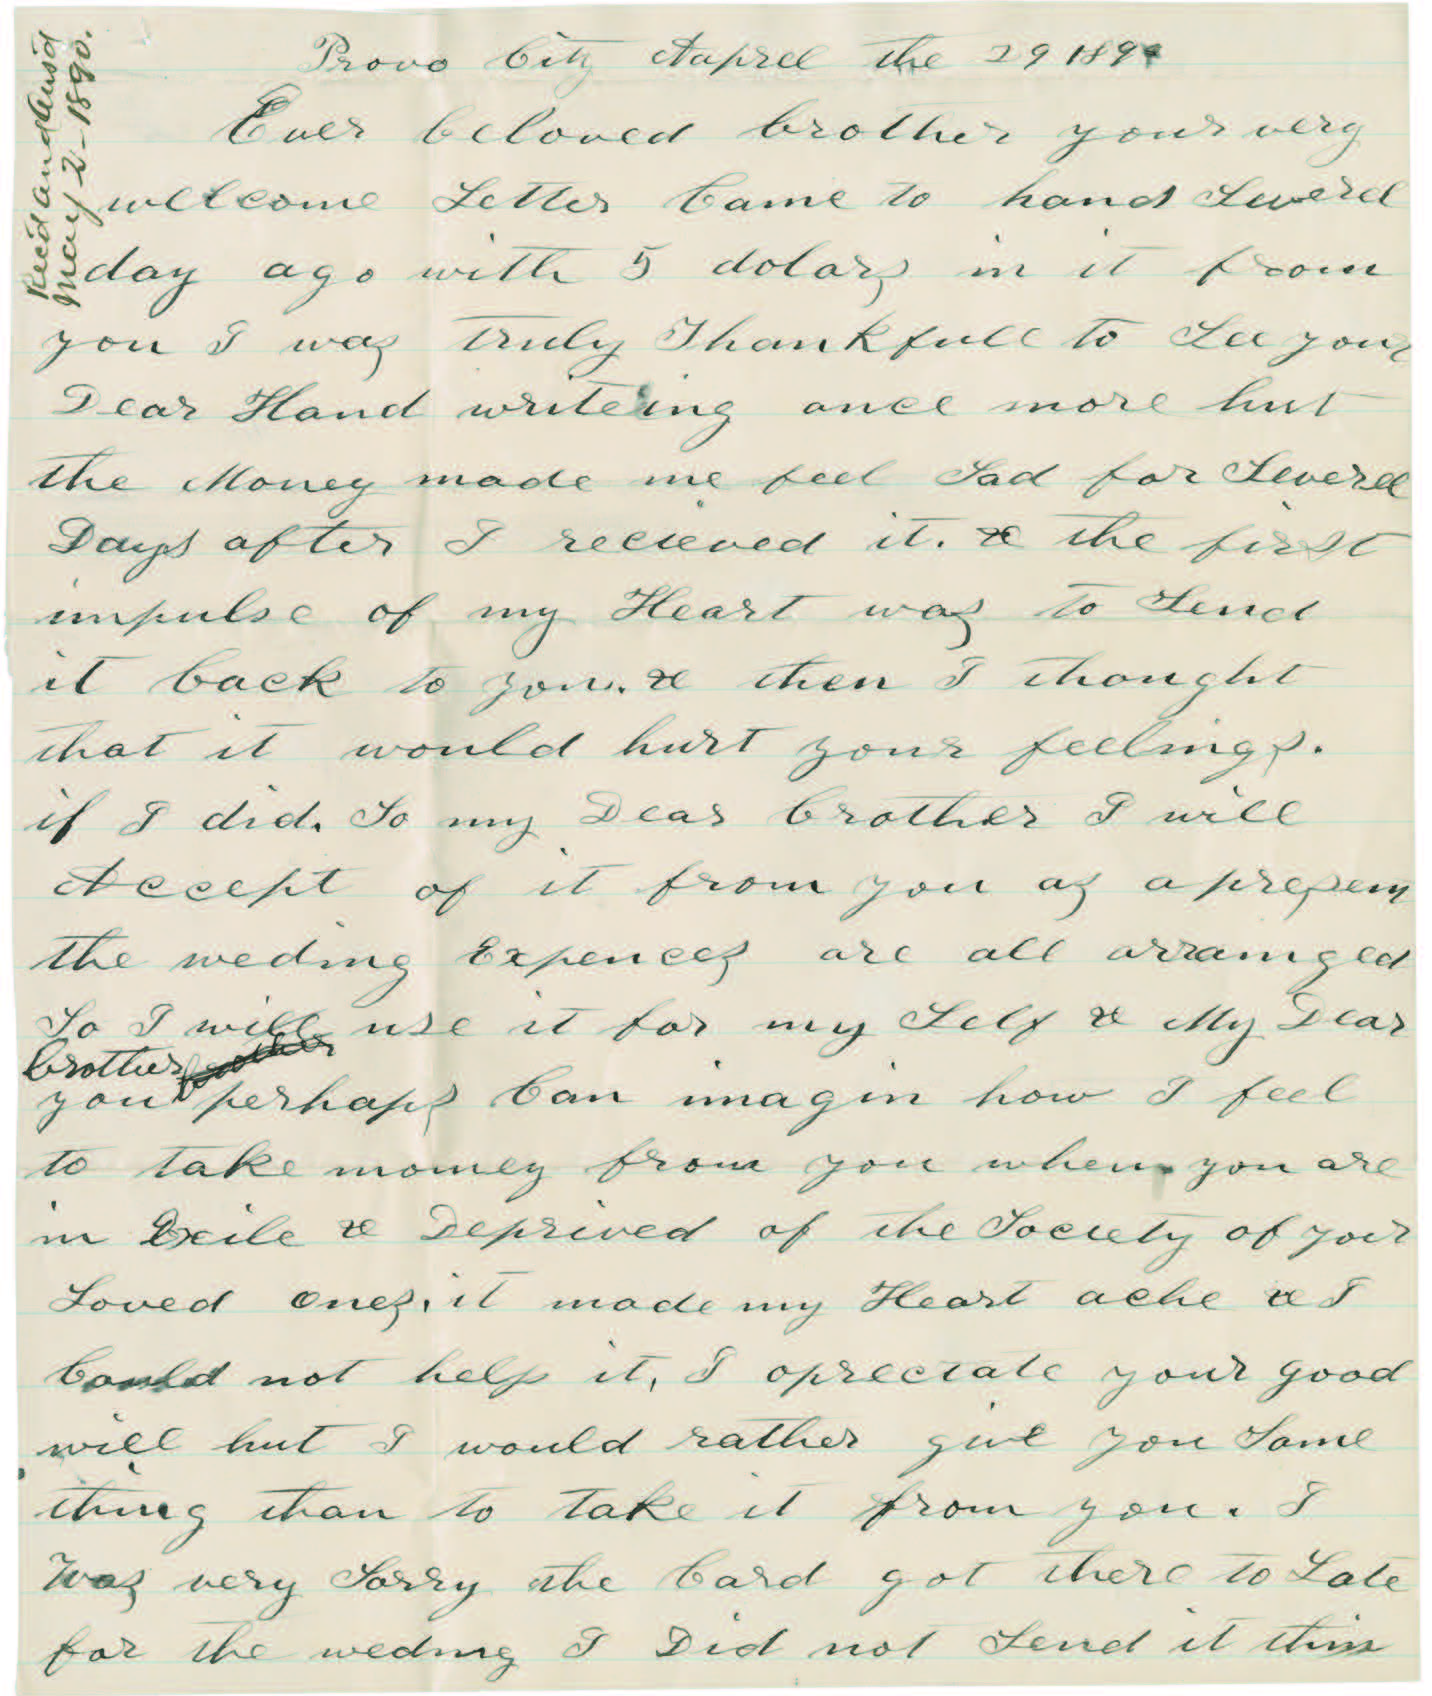 Recd and Ansd
May 2 - 1890.
Provo City Aaprel the 29 1890
Ever beloved brother your very
wellcome Letter Came to hand Severel
day ago with 5 dolars in it from
you I was truly Thankfull to See your
Dear Hand writeing once more but
the Money made me feel Sad for Severel
Days after I recieved it. & the first
impulse of my Heart was to Send
it back to you. & then I thought
that it would hurt your feelings.
if I did. So my Dear brother I will
Accept of it from you as a presen
the weding Expences are all arrainged
So I will use it for my Self & My Dear
brother
you perhaps Can imagin how I feel
to take money from you when you are
in Exile & Deprived of the Society of your
Loved ones. it made my Heart ache & I
Could not help it, I apreciate your good
will but I would rather give you Some
thing than to take it from you. I
Was very Sorry the Card got there to Late
for the weding I Did not Send it